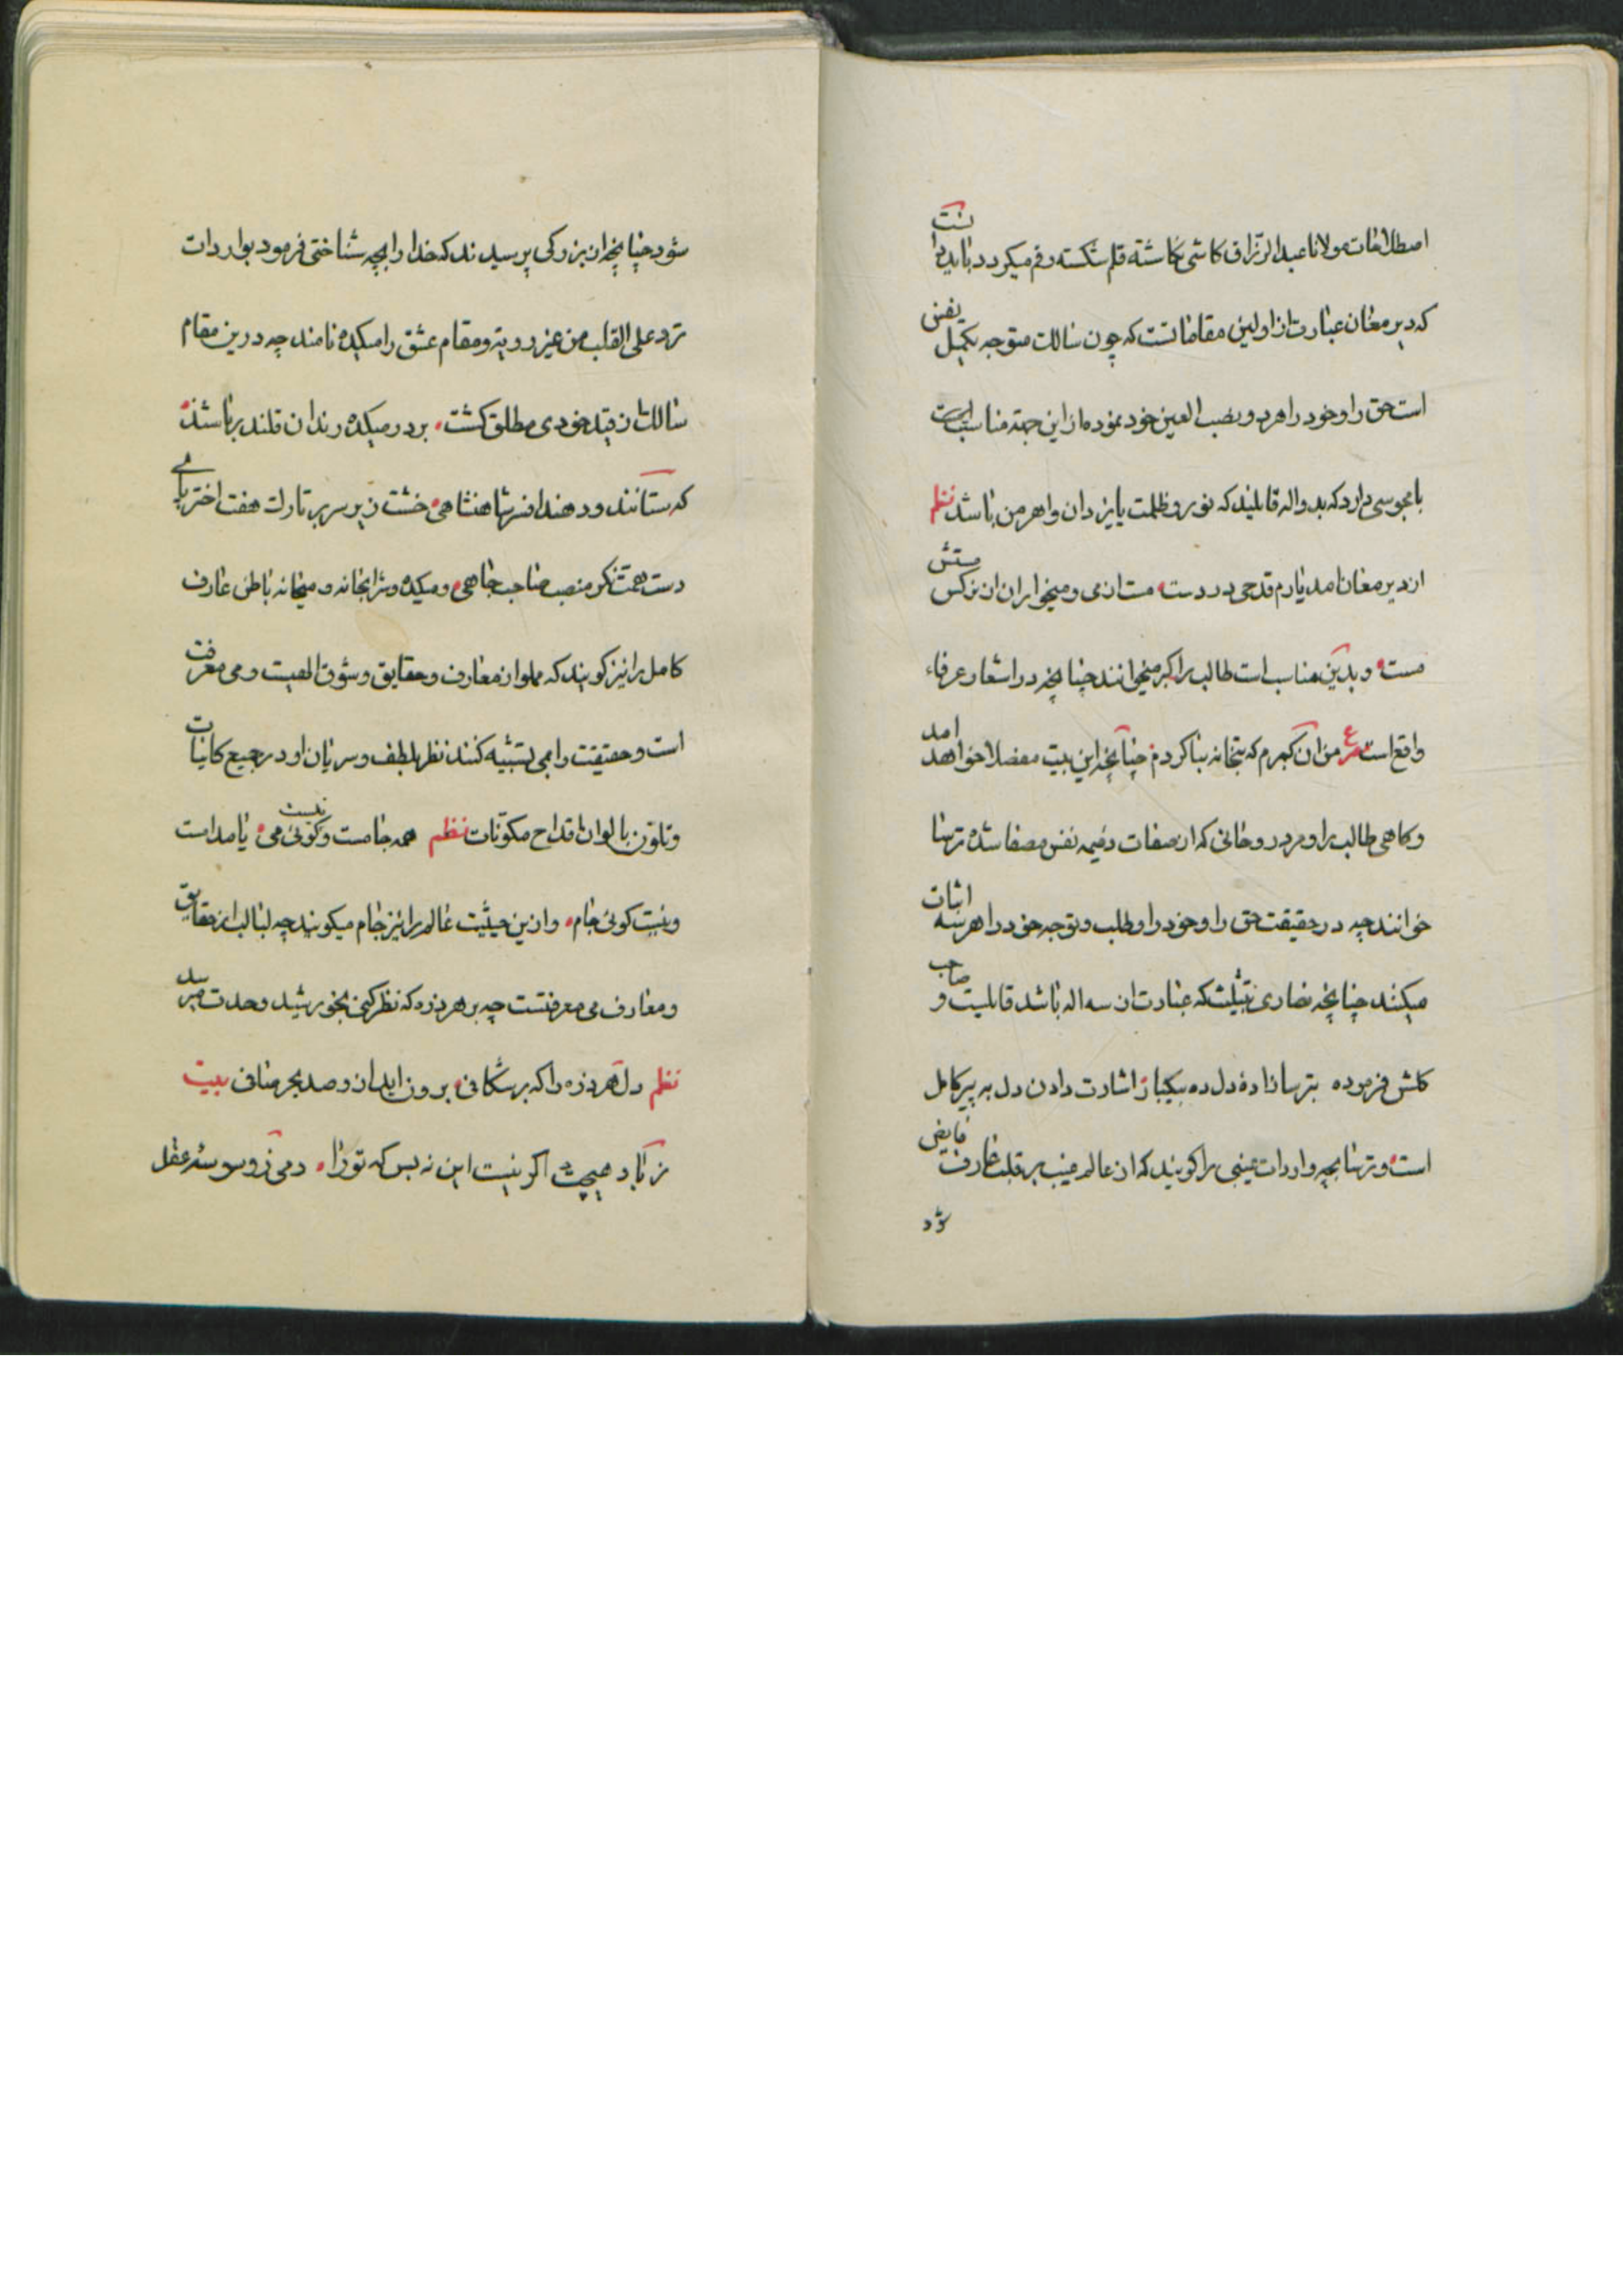 اصطلاحات مولانا عبدالرزاق کاشی نکاشته قلم شکسته رقم میکردد بباید دانست
که دیر مغان عبارت از اولین مقاماتست که چون سالک متوجه تکمیل نفس
است حق را و خود را هر دو نصب العین خود نموده از این جهة مناسب است
با مجوسی دارد که بدو اله قایلیند که نور و ظلمت یا یزدان و اهرمن باشد نظم
از دیر مغان امد یارم قدحی در دست مست از می و میخواران از نرکس مستش
مست و بدین مناسب است طالب را کبر میخوانند چنانچه در اشعار عرفاء
واقع است ع من ان کبرم که بتخانه بنا کردم چنانچه این بیت مفصلا خواهد امد
و کاهی طالب را و مرد روحانی که از صفات ذمیمه نفس مصفا شده ترسا
خوانند چه در حقیقت حق را و خود را و طلب و توجه خود را هر سه اثبات
میکنند چنانچه نصاری بتثلیث که عبارت از سه اله باشد قایلیت و صاحب
کلشن فرموده بترسازاده دل ده بیکبار اشارت دادن دل به پیر کامل
است و ترسابچه واردات غیبی را کویند که از عالم غیب بر قلب عارف فایض
شود
شود چنانچه از بزرکی پرسیدند که خدا را بچه شناختی فرمود بواردات
ترد علی القلب من غیر رویة و مقام عشق را میکده نامند چه در ین مقام
سالک از قید خودی مطلق کشت بر در میکده رندان قلندر باشند
که ستانند و دهند افسر شاهنشاهی خشت زیر سر بر تارک هفت اختر پای
دست همت نکر منصب صاحب جاهی و میکده و شرابخانه و میخانه باطن عارف
کامل را نیز کویند که مملو از معارف و حقایق و شوق الهیست و می معرفت
است و حقیقت را بمی تشبیه کنند نظر بلطف و سریان او در جمیع کاینات
و تلون بالوان اقداح مکونات نظم همه جامست و کوئی نیست می یا مدامست
و نیست کوئی جام و از ین حیثیت عالم را نیز جام میکویند چه لبالب از حقایق
و معارف می معرفتست چه بر هر ذره که نظر کنی بخورشید وحدت میرسد
نظم دل هر ذره را که برشکافی برون اید از و صد بحر صافی بیت
ز یاد هیچت اکر نیست این نه بس که تو را دمی ز وسوسه عقل